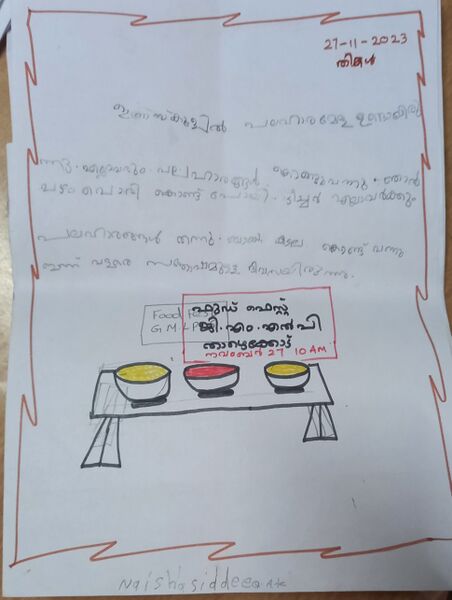 27-11-2023
തിങ്കൾ
ഇന്ന് സ്കൂളിൽ പലഹാരമേള ഉണ്ടായിരു
ന്നു. എല്ലാവരും പലഹാരങ്ങൾ കൊണ്ടുവന്നു. ഞാൻ
പഴം പൊരി കൊണ്ട് പോയി. ടീച്ചർ എല്ലാവർക്കും
പലഹാരങ്ങൾ തന്നു. ബാക്കി കൊണ്ട് വന്നു
ഇന്ന് വളരെ സന്തോഷമുള്ള ദിവസമായിരുന്നു.
Food Fest
G.M.L.P
ഫുഡ് ഫെസ്റ്റ്
ജി.എം.എൽ.പി
താഴെക്കോട്
നവംബർ 27 10 AM
Naisha siddeeq